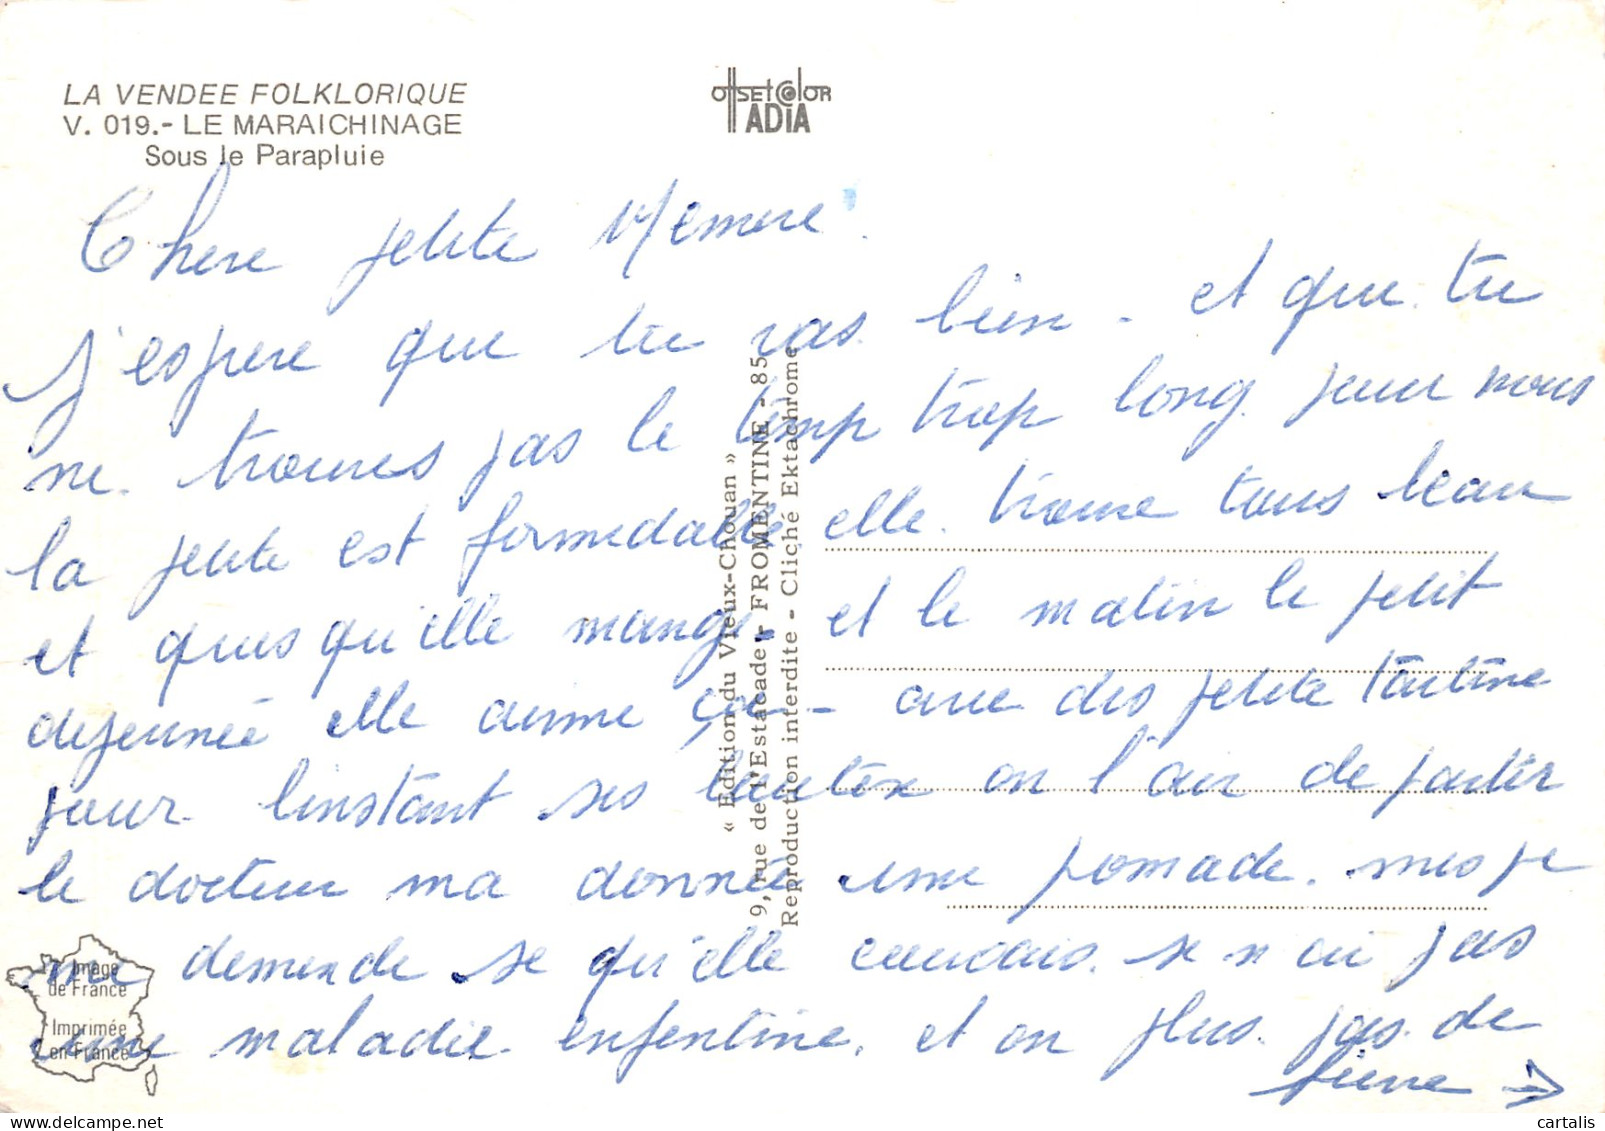 LA VENDEE FOLKLORIQUE
V. 019.- LE MARAICHINAGE
Sous le Parapluie
OffsetColor
ADIA
Chere petite Memere
j'espere que tu vas bien - et que tu
ne trouves pas le temp trop long pour nous
la petite est formedable elle trouve tous beau
et quesqu'elle mange et le matin le petit
dejeunée elle aime ça - avec des petite tartine
pour l'instant ses boutox on l'air de partir
le docteur ma donnée une pomade. mes je
me demende se qu'elle couvais. se n ai pas
une maladie enfentine. et on plus pas de
fievre →
« Edition du Vieux-Chouan »
9, rue de l'Estacade - FROMENTINE - 85
Reproduction interdite - Cliché Ektachrome
Image
de France
Imprimée
en France
cartalis